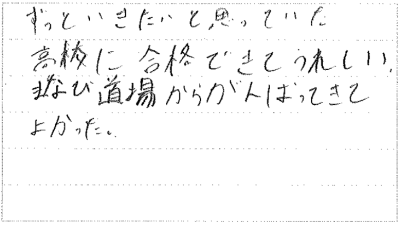 ずっといきたいと思っていた
高校に合格できてうれしい。
まなび道場からがんばってきて
よかった。